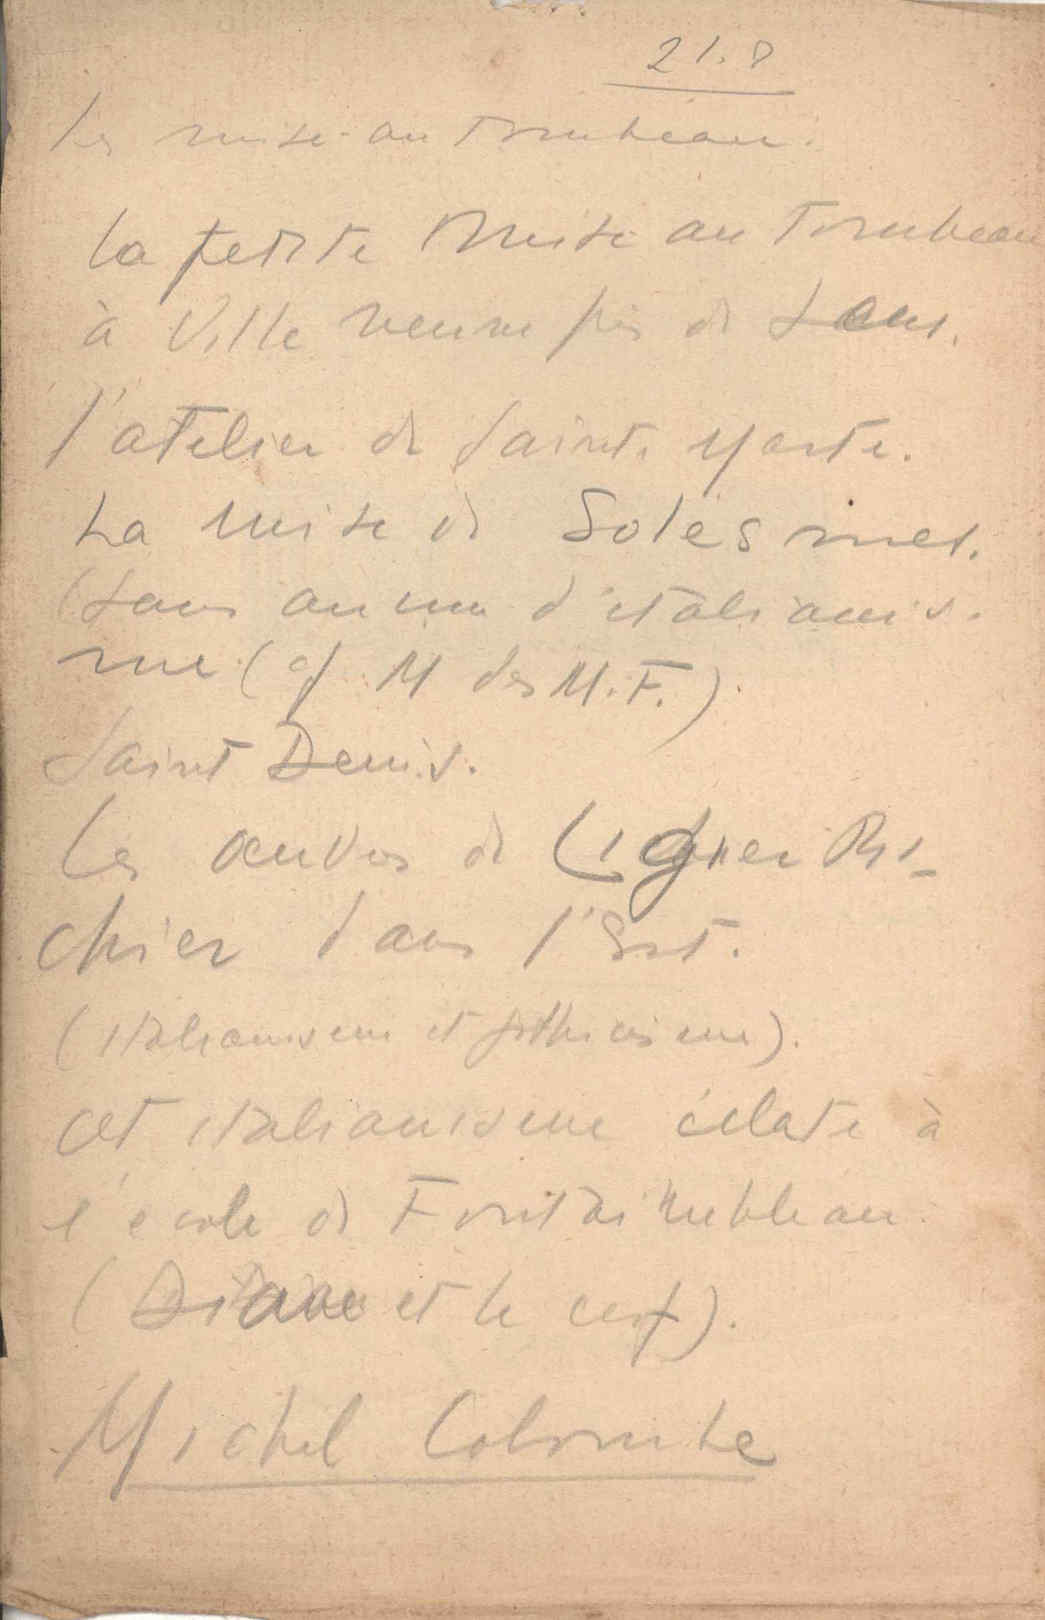 21.8
Les mise au Tombeau.
la petite Mise au Tombeau
à Ville neuve près de Sens.
l'atelier de Sainte Marte.
La mise de Solesmes.
(Sans aucun d'italianis-
me (cf M des M.F.).
Saint Denis.
Les œuvres de Ligier Ri-
chier dans l'Est.
(italianisme et gothicisme).
Cet italianisme éclate à
l'école de Fontainebleau
(Diane et le cerf).
Michel Colombe